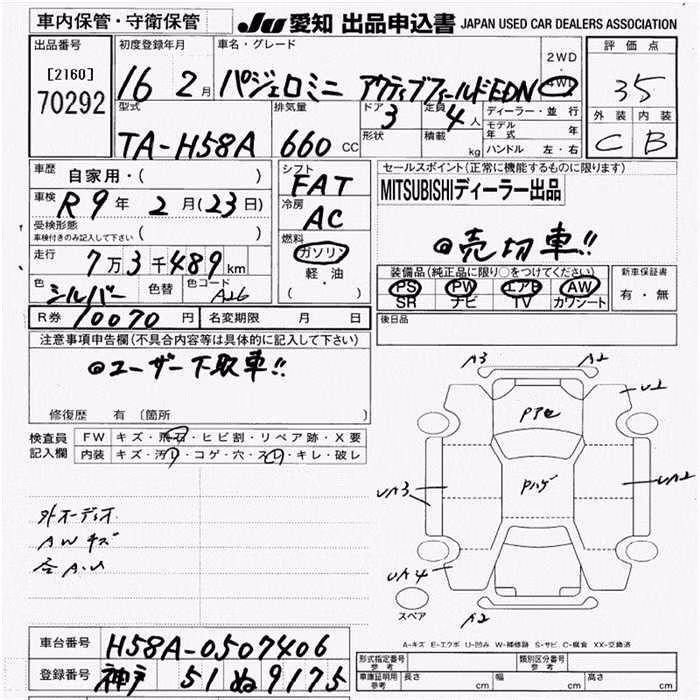 車内保管・守衛保管
JU 愛知 出品申込書 JAPAN USED CAR DEALERS ASSOCIATION
出品番号
[2160]
70292
初度登録年月
16 2月
車名・グレード
パジェロミニ アクティブフィールドEDN
2WD
4WD
評価点
35
外装 内装
C B
型式
TA-H58A
排気量
660 CC
ドア 3
形状
定員 4人
積載 kg
ディーラー・並行
モデル年式 年
ハンドル 左・右
車歴 自家用・( )
車検 R9年 2月(23日)
受検形態
車検付きのみ記入して下さい ( )
走行 7万3千489km
色 シルバー 色替 色コード A26
R券 10070円 名変期限 月 日
シフト
FAT
冷房
AC
燃料
ガソリン
軽・油
( )
セールスポイント(正常に機能するものに限ります)
MITSUBISHIディーラー出品
◎売切車!!
装備品(純正品に限り○をつけてください)
PS PW エアB AW
SR ナビ TV カワシート
新車保証書
有・無
後日品
注意事項申告欄(不具合内容等は具体的に記入して下さい)
◎ユーザー下取車!!
修復歴 有 〔箇所 〕
検査員記入欄
FW キズ・飛石・ヒビ割・リペア跡・X要
内装 キズ・汚レ・コゲ・穴・スレ・キレ・破レ
外オーディオ
AWキズ
各A.U
A3 A2
U2
UA3
UA2
UA4
A2
スペア
A-キズ E-エクボ U-凹み W-補修跡 S-サビ C-腐食 XX-交換済
車台番号 H58A-0507406
登録番号 神戸 51 ぬ 9175
形式指定番号 参考
類別区分番号 参考
車庫証明用 参考 長さ cm 幅 cm 高さ cm